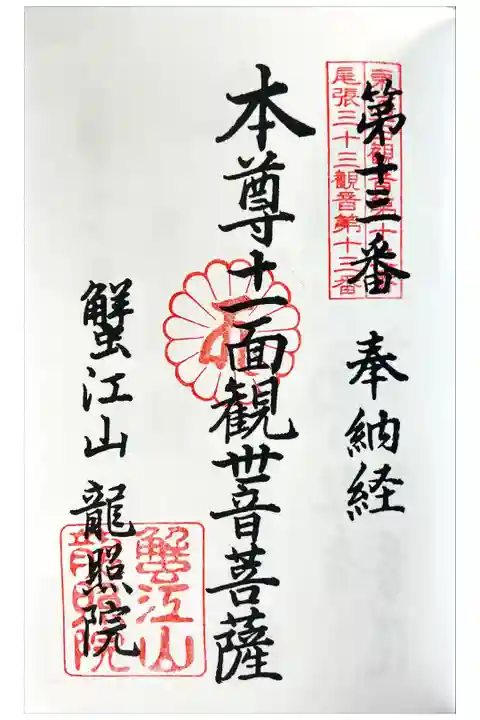 第十三番
尾張三十三観音第十三番
奉納経
本尊十一面観世音菩薩
蟹江山 龍照院
蟹江山
龍照院